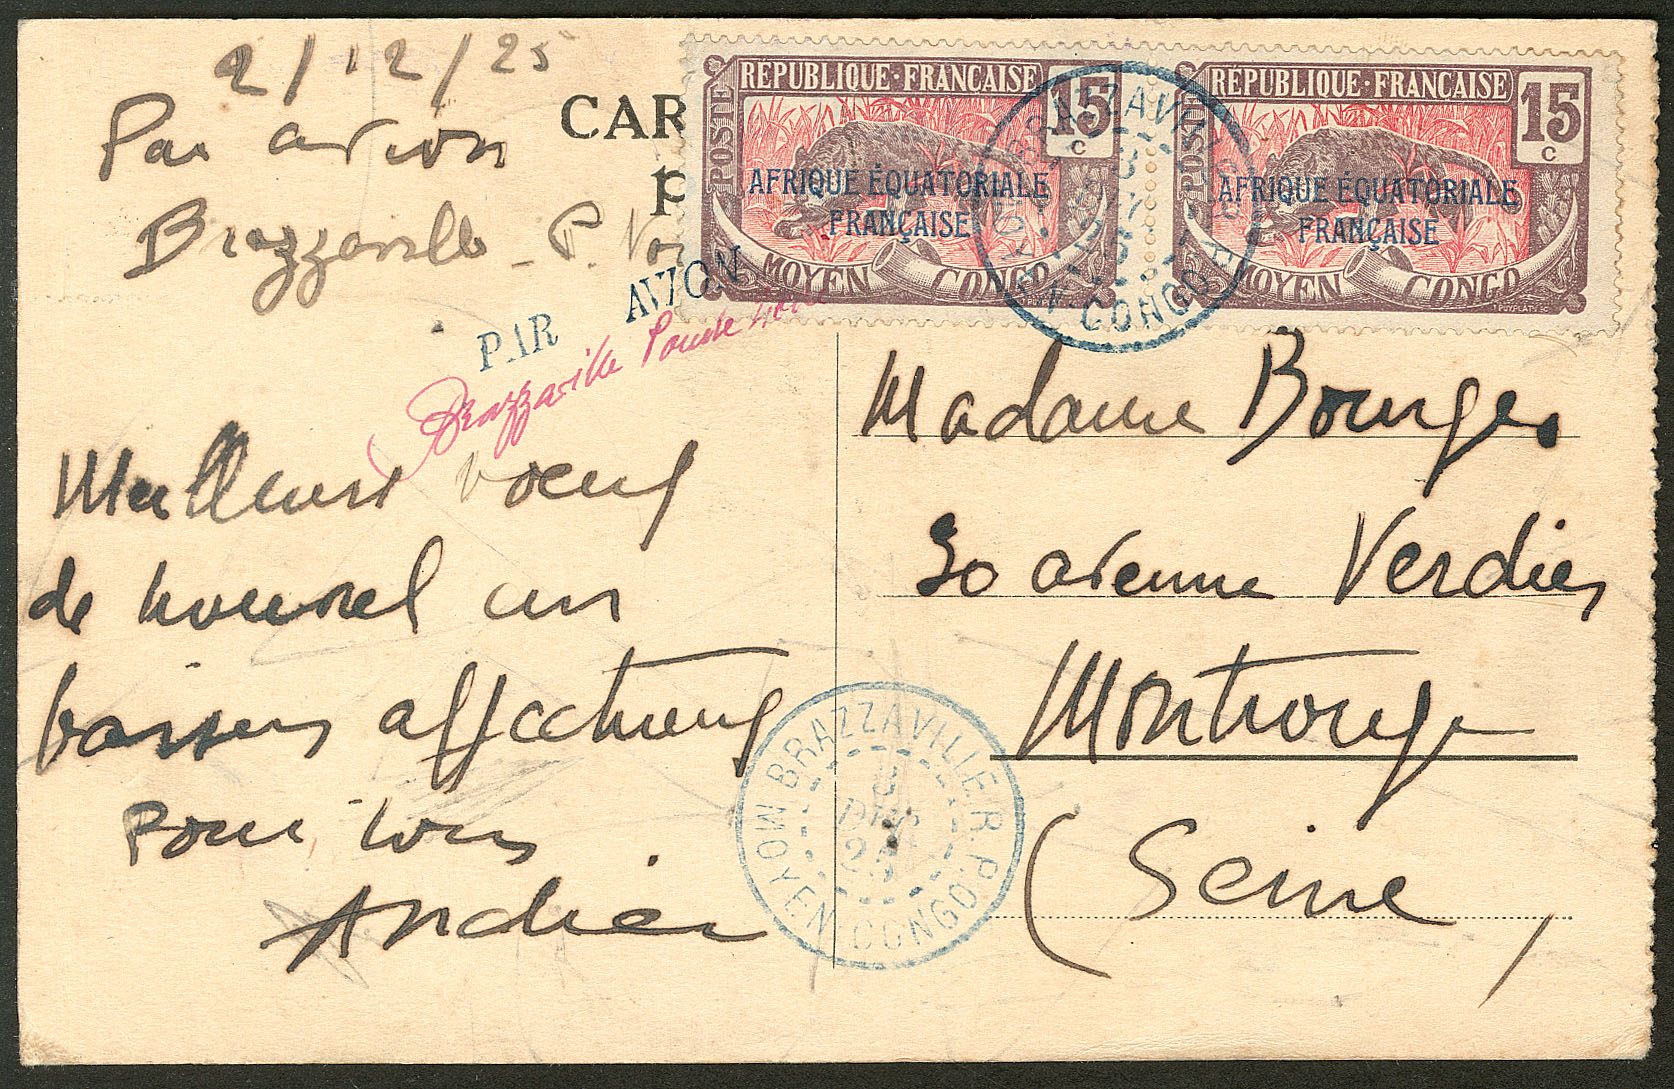 2/12/25
Par avion
Brazzaville - P. Noi
CAR
P
RÉPUBLIQUE·FRANÇAISE
15
C
POSTES
AFRIQUE ÉQUATORIALE
FRANÇAISE
MOYEN CONGO
RÉPUBLIQUE·FRANÇAISE
15
C
POSTES
AFRIQUE ÉQUATORIALE
FRANÇAISE
MOYEN CONGO
BRAZZAVILLE
MOYEN CONGO
PAR AVION
Brazzaville Pointe noire
Meilleurs voeux
de nouvel an
baisers affectueux
pour tous
André
Madame Bourges
30 avenue Verdier
Montrouge
(Seine)
BRAZZAVILLE R.P.
3
DEC
25
MOYEN CONGO